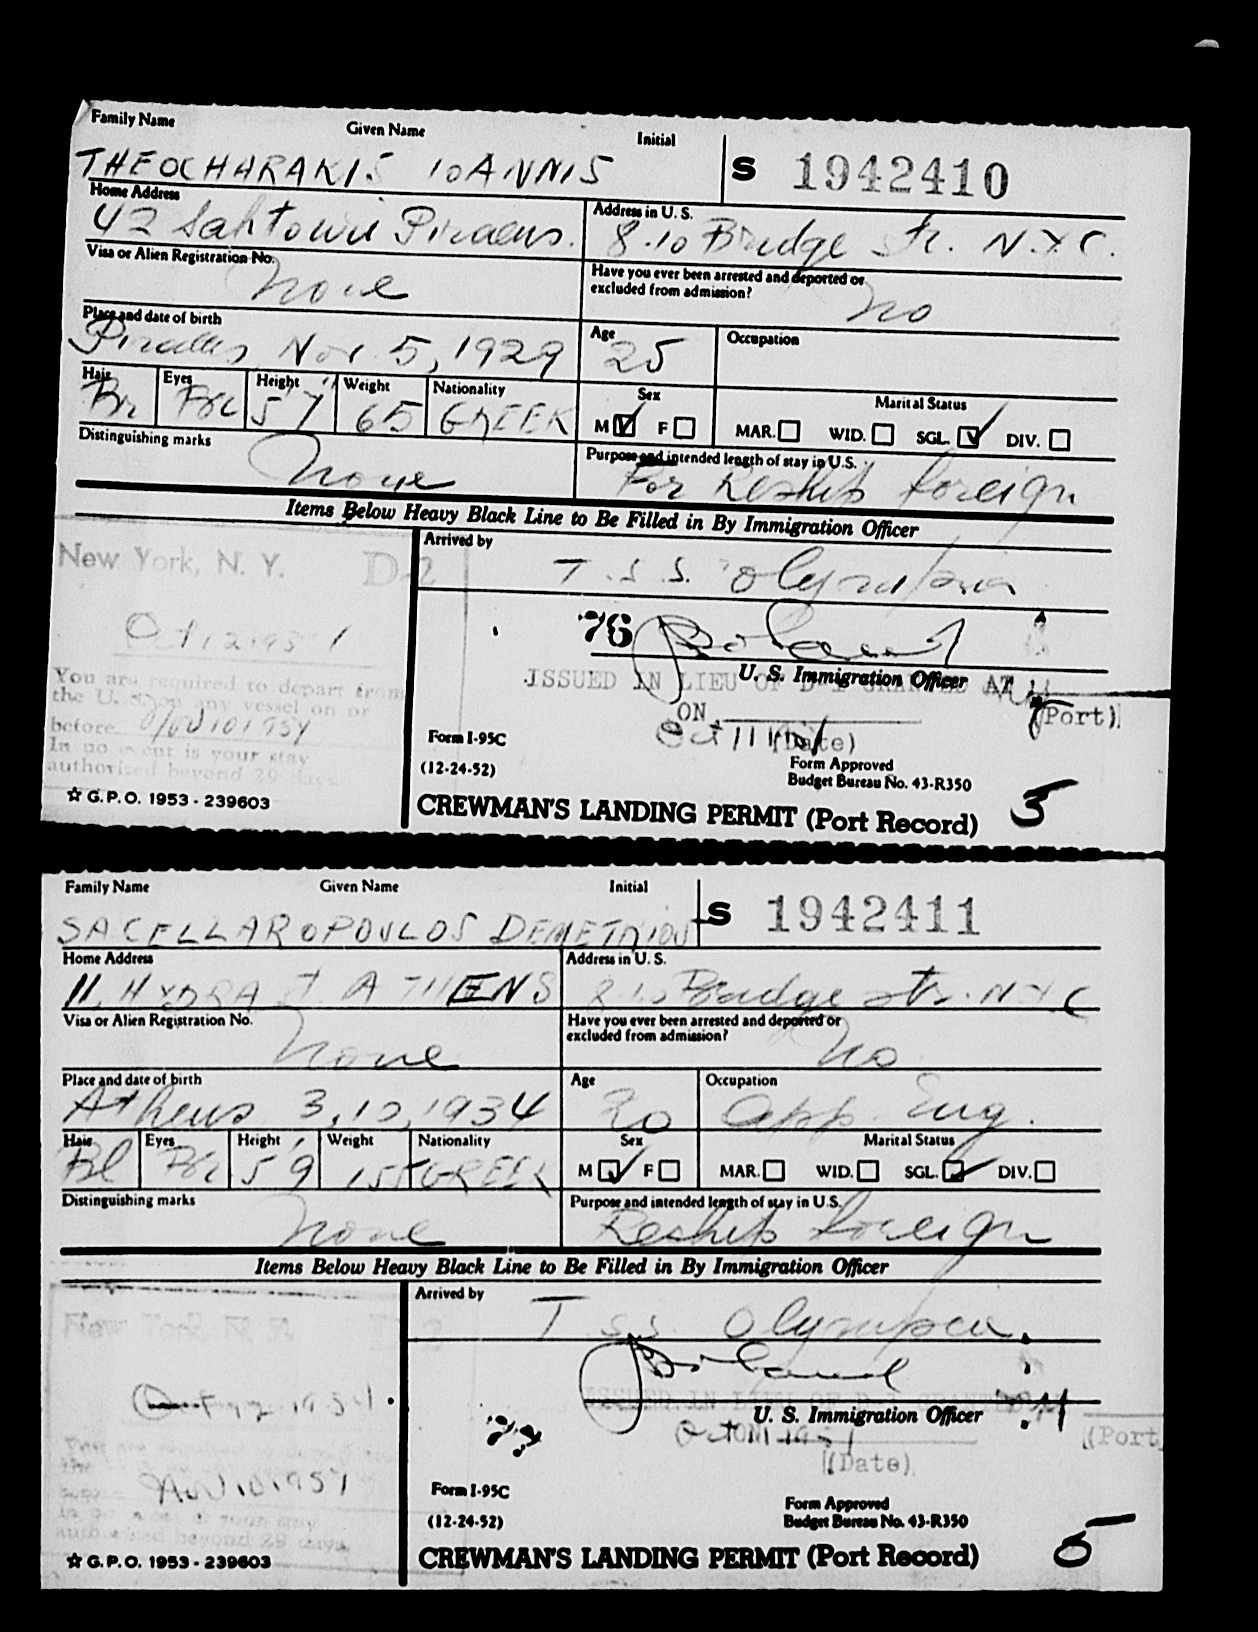 Family Name Given Name Initial
THEOCHARAKIS IOANNIS S 1942410
Home Address Address in U. S.
42 Piraeus. 8-10 Bridge Str. N.Y.C.
Visa or Alien Registration No. Have you ever been arrested and deported or excluded from admission?
None No
Place and date of birth Age Occupation
Piraeus, Nov 5, 1929 25
Hair Eyes Height Weight Nationality Sex Marital Status
Br 5' 7" 65 GREEK M F MAR. WID. SGL. DIV.
Distinguishing marks Purpose and intended length of stay in U.S.
None For Reship foreign
Items Below Heavy Black Line to Be Filled in By Immigration Officer
New York, N. Y. D-2
Arrived by
T.S.S. Olympia
76
U. S. Immigration Officer
ISSUED IN LIEU OF D-1 GRANTED AT
(Port)
ON
(Date)
You are required to depart from
the U. S. on any vessel on or
before
In no event is your stay
authorized beyond 29 days.
Form I-95C
(12-24-52)
Form Approved
Budget Bureau No. 43-R350
☆ G.P.O. 1953 - 239603
CREWMAN'S LANDING PERMIT (Port Record) 5
Family Name Given Name Initial
SACELLAROPOULOS DEMETRIOS S 1942411
Home Address Address in U. S.
11, HYDRA ST ATHENS 8-10 Bridge str. NYC
Visa or Alien Registration No. Have you ever been arrested and deported or excluded from admission?
None No
Place and date of birth Age Occupation
Athens 3.10.1934 20 App. Eng.
Hair Eyes Height Weight Nationality Sex Marital Status
Bl Br 5' 9 155 GREEK M F MAR. WID. SGL. DIV.
Distinguishing marks Purpose and intended length of stay in U.S.
None Reship foreign
Items Below Heavy Black Line to Be Filled in By Immigration Officer
New York, N. Y.
Arrived by
T.S.S. Olympia
ISSUED IN LIEU OF D-1 GRANTED
U. S. Immigration Officer
(Port
(Date)
authorized beyond 29 days.
Form I-95C
(12-24-52)
Form Approved
Budget Bureau No. 43-R350
☆ G.P.O. 1953 - 239603
CREWMAN'S LANDING PERMIT (Port Record) 5